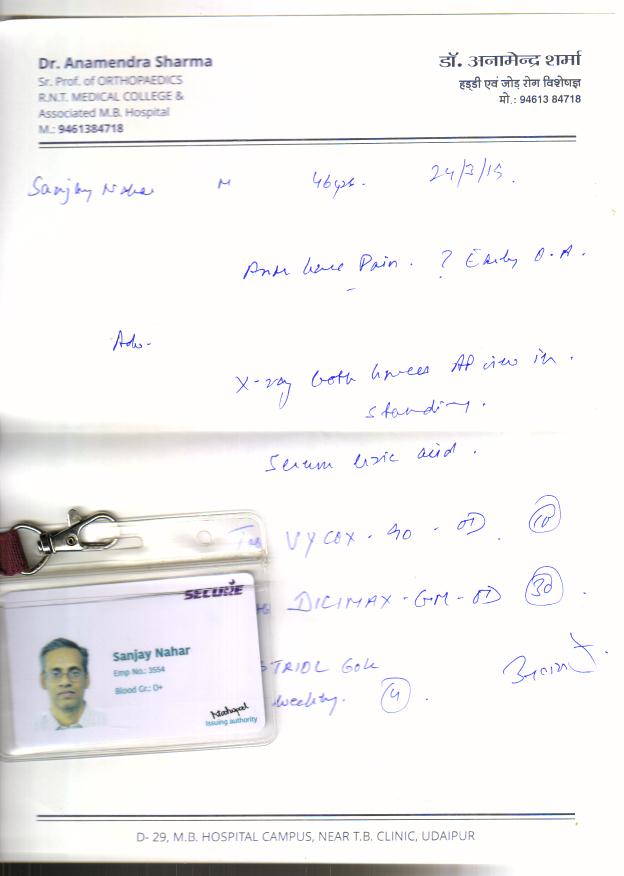 Dr. Anamendra Sharma
Sr. Prof. of ORTHOPAEDICS
R.N.T. MEDICAL COLLEGE &
Associated M.B. Hospital
M.: 9461384718
डॉ. अनामेन्द्र शर्मा
हड्डी एवं जोड़ रोग विशेषज्ञ
मो.: 94613 84718
Sanjay Nahar M 46yrs. 24/7/15.
knee Pain. ? Early O.A.
Adv-
X-ray both knees AP view in.
standing.
Serum Uric acid.
Tab VYCOX-90-OD. 10
DICIMAX-GM-OD 30.
TRIOL 60k
weekly. 4.
SECURE
Sanjay Nahar
Emp No.: 3554
Blood Gr.: O+
Issuing authority
D- 29, M.B. HOSPITAL CAMPUS, NEAR T.B. CLINIC, UDAIPUR